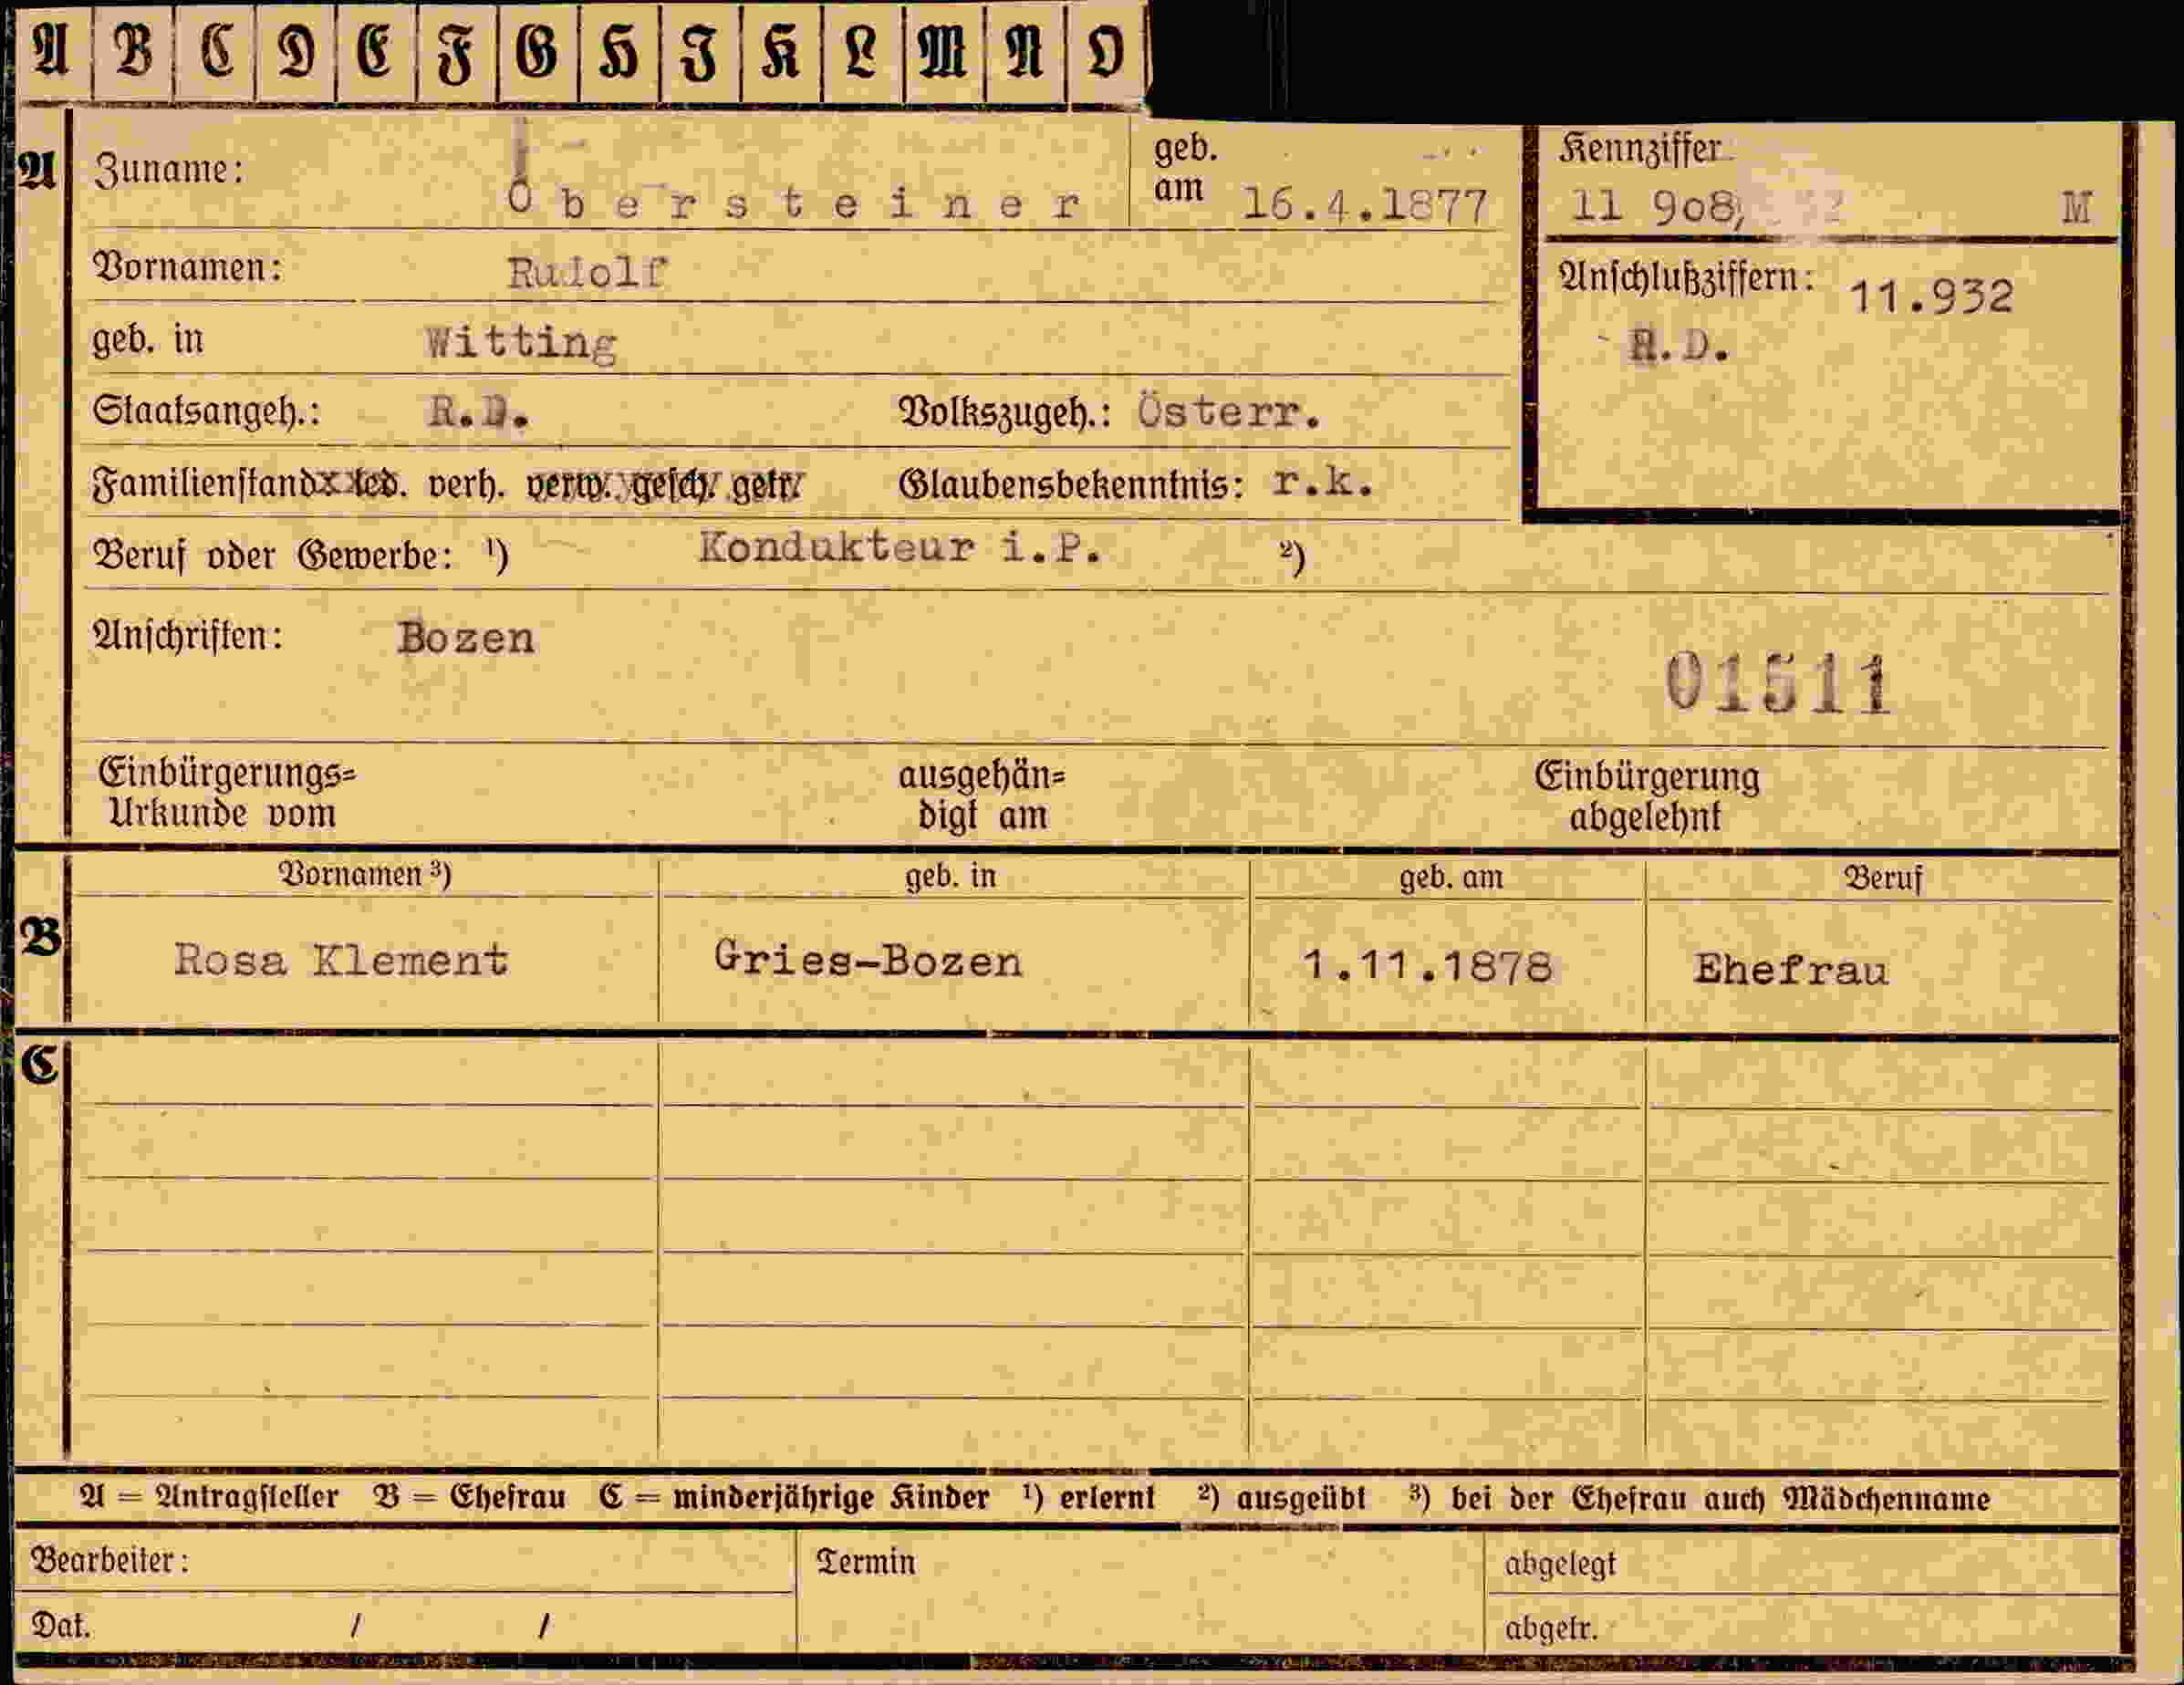 A B C D E F G H I K L M N O
A Zuname: Obersteiner geb. am 16.4.1877 Kennziffer 11 908, M
Vornamen: Rudolf Anschlußziffern: 11.932
geb. in Witting R.D.
Staatsangeh.: R.D. Volkszugeh.: Österr.
Familienstand led. verh. verw. gesch. getr. Glaubensbekenntnis: r.k.
Beruf oder Gewerbe: ¹) Kondukteur i.P. ²)
Anschriften: Bozen
01511
Einbürgerungs= Urkunde vom ausgehän= digt am Einbürgerung abgelehnt
Vornamen ³) geb. in geb. am Beruf
B Rosa Klement Gries-Bozen 1.11.1878 Ehefrau
C
A = Antragsteller B = Ehefrau C = minderjährige Kinder ¹) erlernt ²) ausgeübt ³) bei der Ehefrau auch Mädchenname
Bearbeiter: Termin abgelegt
Dat. / / abgetr.